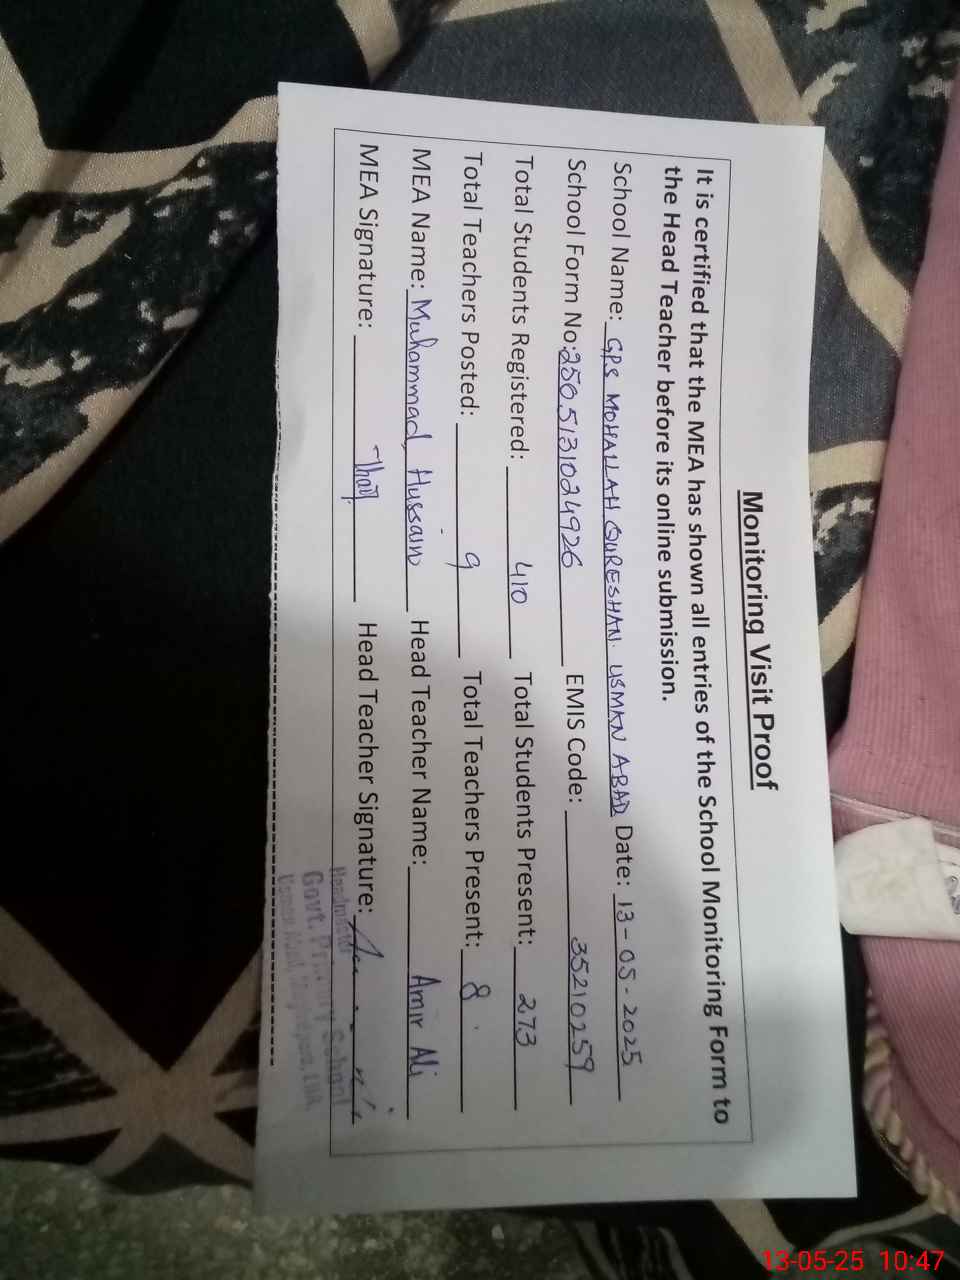 Monitoring Visit Proof
It is certified that the MEA has shown all entries of the School Monitoring Form to
the Head Teacher before its online submission.
School Name: GPS MOHALLAH QURESHAN. USMAN ABAD Date: 13-05-2025
School Form No: 2505131024926 EMIS Code: 35210259
Total Students Registered: 410 Total Students Present: 273
Total Teachers Posted: 9 Total Teachers Present: 8
MEA Name: Muhammad Hussain Head Teacher Name: Amir Ali
MEA Signature: Head Teacher Signature:
Headmaster
Govt. Primary School
13-05-25 10:47